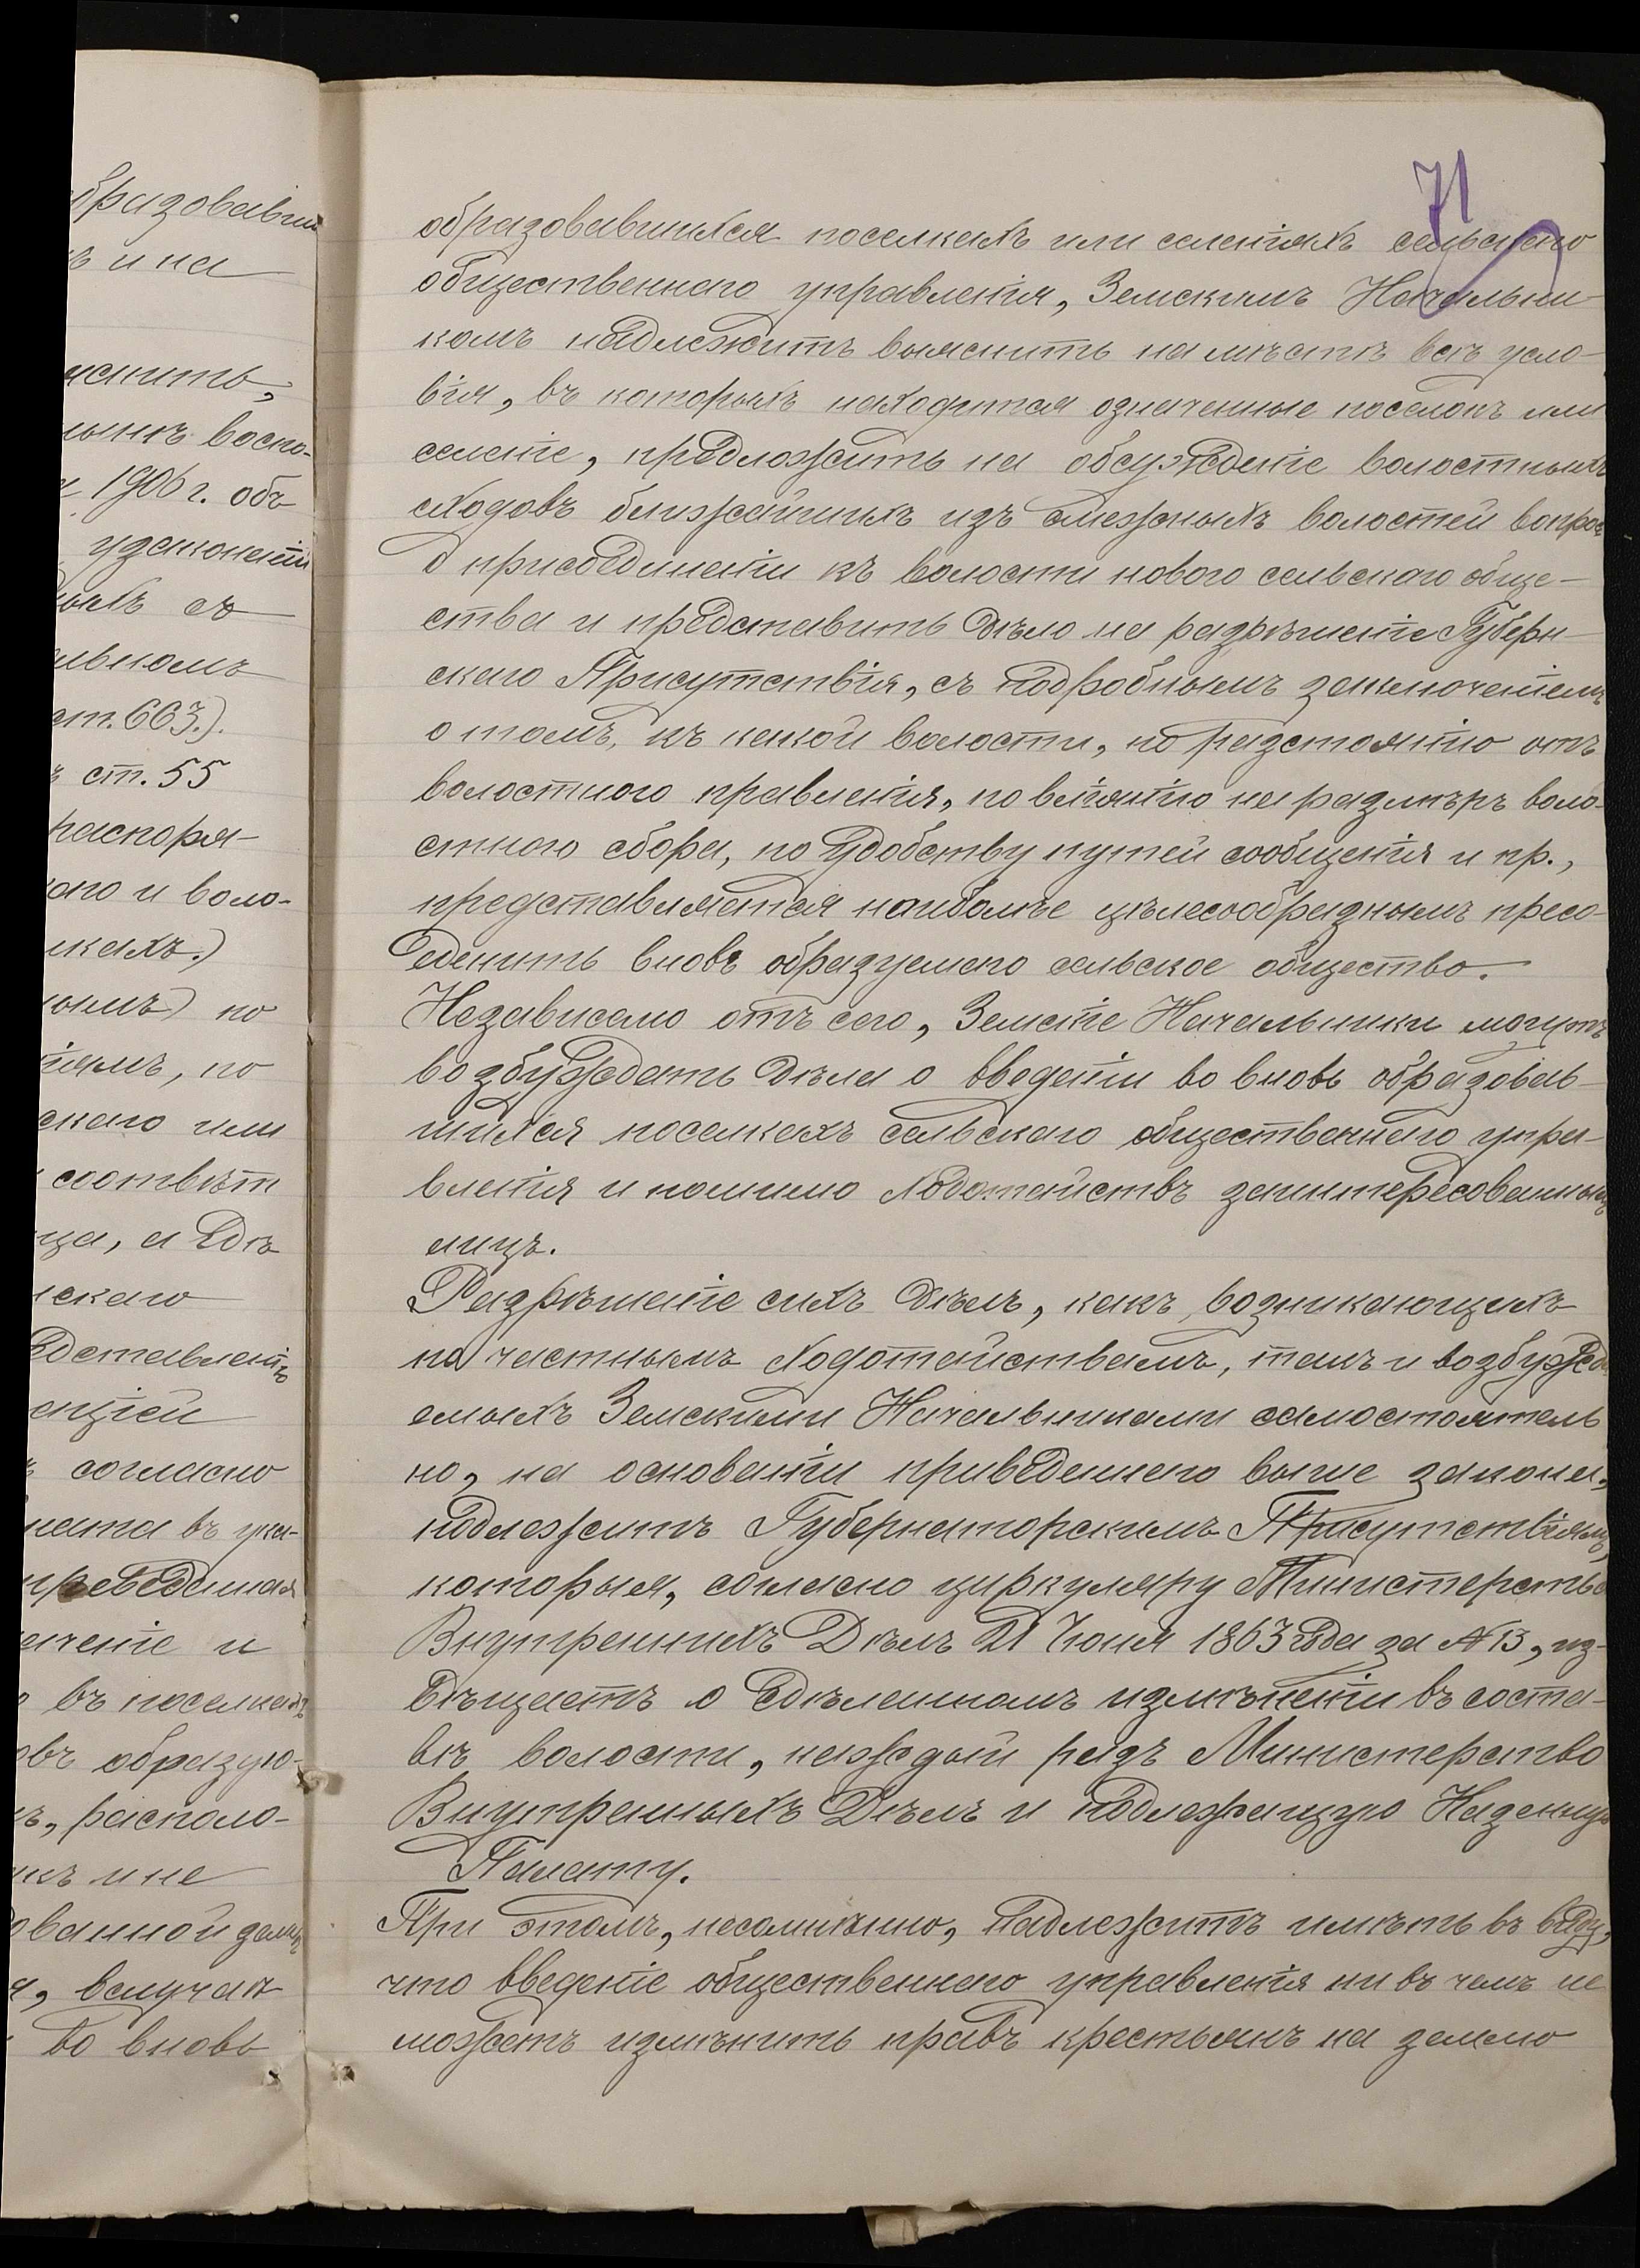 71
образовавшихся поселкахъ или селеніяхъ сельскаго
общественнаго управленія, Земскимъ Начальни-
камъ надлежитъ выяснить на мѣстѣ всѣ усло-
вія, въ которыхъ находятся означенные поселокъ или
селеніе, предложить на обсужденіе волостныхъ
сходовъ ближайшихъ изъ смежныхъ волостей вопросъ
о присоединеніи къ волости новаго сельскаго обще-
ства и представить дѣло на разрѣшеніе Губерн
скаго Присутствія, съ подробнымъ заключеніемъ
о томъ, къ какой волости, по разстоянію отъ
волостного правленія, по вліянію на размѣръ воло-
стного сбора, по удобству путей сообщенія и пр.,
представляется наиболѣе цѣлесообразнымъ присо-
единить вновь образуемаго сельское общество.
Независимо отъ сего, Земскіе Начальники могутъ
возбуждать дѣла о введеніи во вновь образовав-
шихся поселкахъ сельскаго общественнаго упра-
вленія и помимо ходотайствъ заинтересованныхъ
лицъ.
Разрѣшеніе сихъ дѣлъ, какъ возникающихъ
по частнымъ ходотайствамъ, такъ и возбужда
емыхъ Земскими Начальниками самостоятель
но, на основаніи приведеннаго выше закона,
подлежитъ Губернаторскимъ Присутствіямъ,
которыя, согласно циркуляру Министерства
Внутреннихъ Дѣлъ 21 Іюня 1863 года за № 13, из-
вѣщаетъ о сдѣланномъ измѣненіи въ соста-
вѣ волости, каждый разъ Министерство
Внутренныхъ Дѣлъ и подлежащую Казенную
Палату.
При этомъ, несомнѣнно, надлежитъ имѣть въ виду,
что введеніе общественнаго управленія ни въ чемъ не
можетъ измѣнить правъ крестьянъ на землю